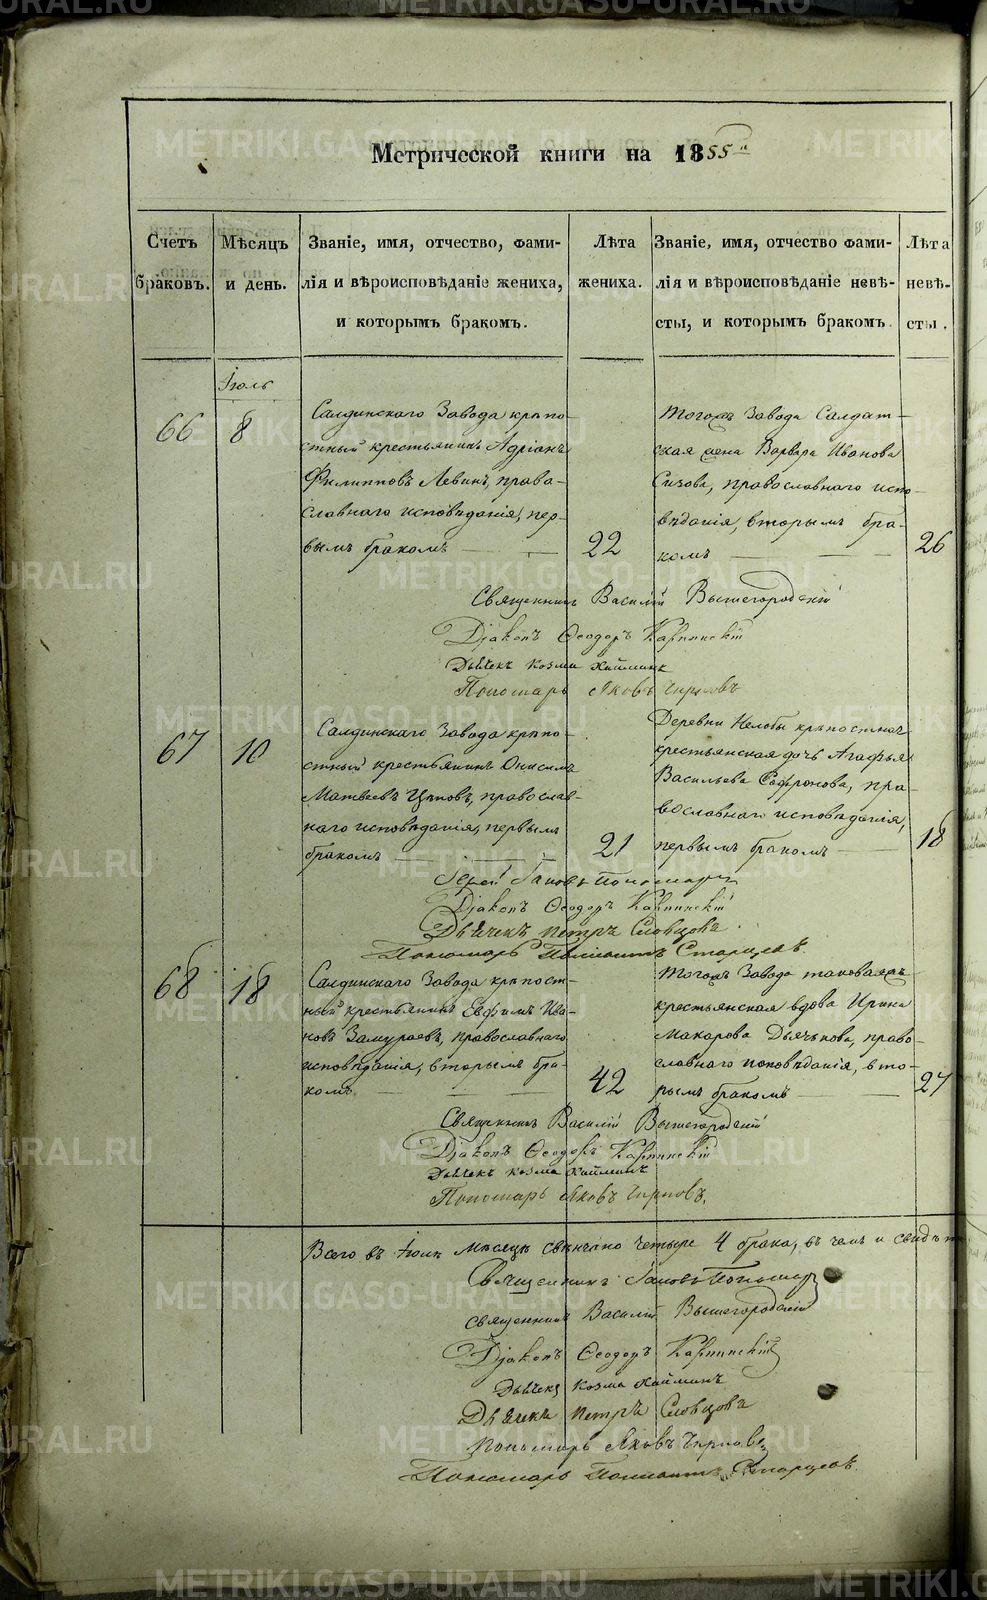 Метрической книги на 1855й
Счетъ браковъ.
Мѣсяцъ и день.
Званіе, имя, отчество, фами-
лія и вѣроисповѣданіе жениха,
и которымъ бракомъ.
Лѣта жениха.
Званіе, имя, отчество фами-
лія и вѣроисповѣданіе невѣ-
сты, и которымъ бракомъ.
Лѣта невѣ-
сты.
Іюль
66
8
Салдинскаго Завода крѣпо-
стный крестьянинъ Адріанъ
Филипповъ Левинъ, право-
славнаго исповѣданія, пер-
вымъ бракомъ
22
Тогожъ Завода Салдат-
ская жена Варвара Иванова
Сизова, православнаго испо-
вѣданія, вторымъ бра-
комъ
26
Священникъ Василій Вышегородскій
Діаконъ Ѳеодоръ Карпинскій
Дьячекъ Козма Хайминъ
Пономарь Яковъ Чирковъ
67
10
Салдинскаго Завода крѣпо-
стный крестьянинъ Онисимъ
Матвеевъ Цѣповъ, православ-
наго исповѣданія, первымъ
бракомъ
21
Деревни Нелобы крѣпостная
крестьянская дочь Агафья
Васильева Сафронова, пра-
вославнаго исповѣданія,
первымъ бракомъ
18
Іерей Іаковъ Пономарев
Діаконъ Ѳеодоръ Карпинскій
Дьячекъ Петръ Словцовъ
Пономарь Старцевъ
68
18
Салдинскаго Завода крѣпост-
ный крестьянинъ Евфимъ Ива-
новъ Замураевъ, православнаго
исповѣданія, вторымъ бра-
комъ
42
Тогожъ Завода таковаяжъ
крестьянская вдова Ирина
Макарова Дьячкова, право-
славнаго исповѣданія, вто-
рымъ бракомъ
27
Священникъ Василій Вышегородскій
Діаконъ Ѳеодоръ Карпинскій
Дьячекъ Козма Хайминъ
Пономарь Яковъ Чирковъ
Всего въ Іюлѣ Мѣсяцѣ свѣнчано четыре 4 брака, въ чемъ и
Священникъ Іаковъ Пономарев
Священникъ Василій Вышегородскій
Діаконъ Ѳеодоръ Карпинскій
Дьячекъ Козма Хайминъ
Дьячекъ Петръ Словцовъ
Пономарь Яковъ Чирковъ
Пономарь Старцевъ
METRIKI.GASO-URAL.RU